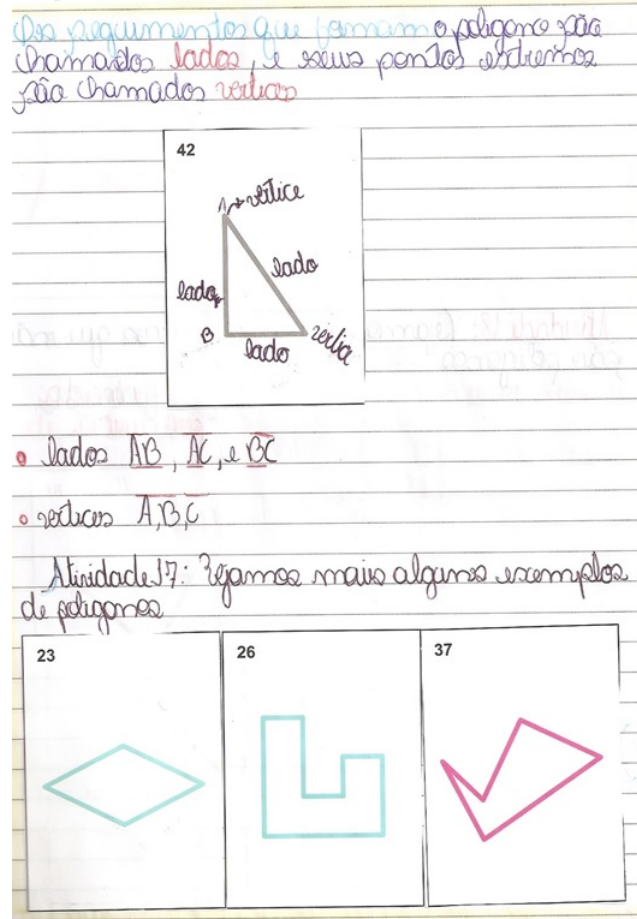 Os seguimentos que formam o poligono são
chamados lados, e seus pontos extremos
são chamados vertices
42
A → vértice
lado
lado
B
lado
vertice
• lados AB, AC, e BC
• vertices A, B, C
Atividade 17: Vejamos mais alguns exemplos
de poligonos
23
26
37